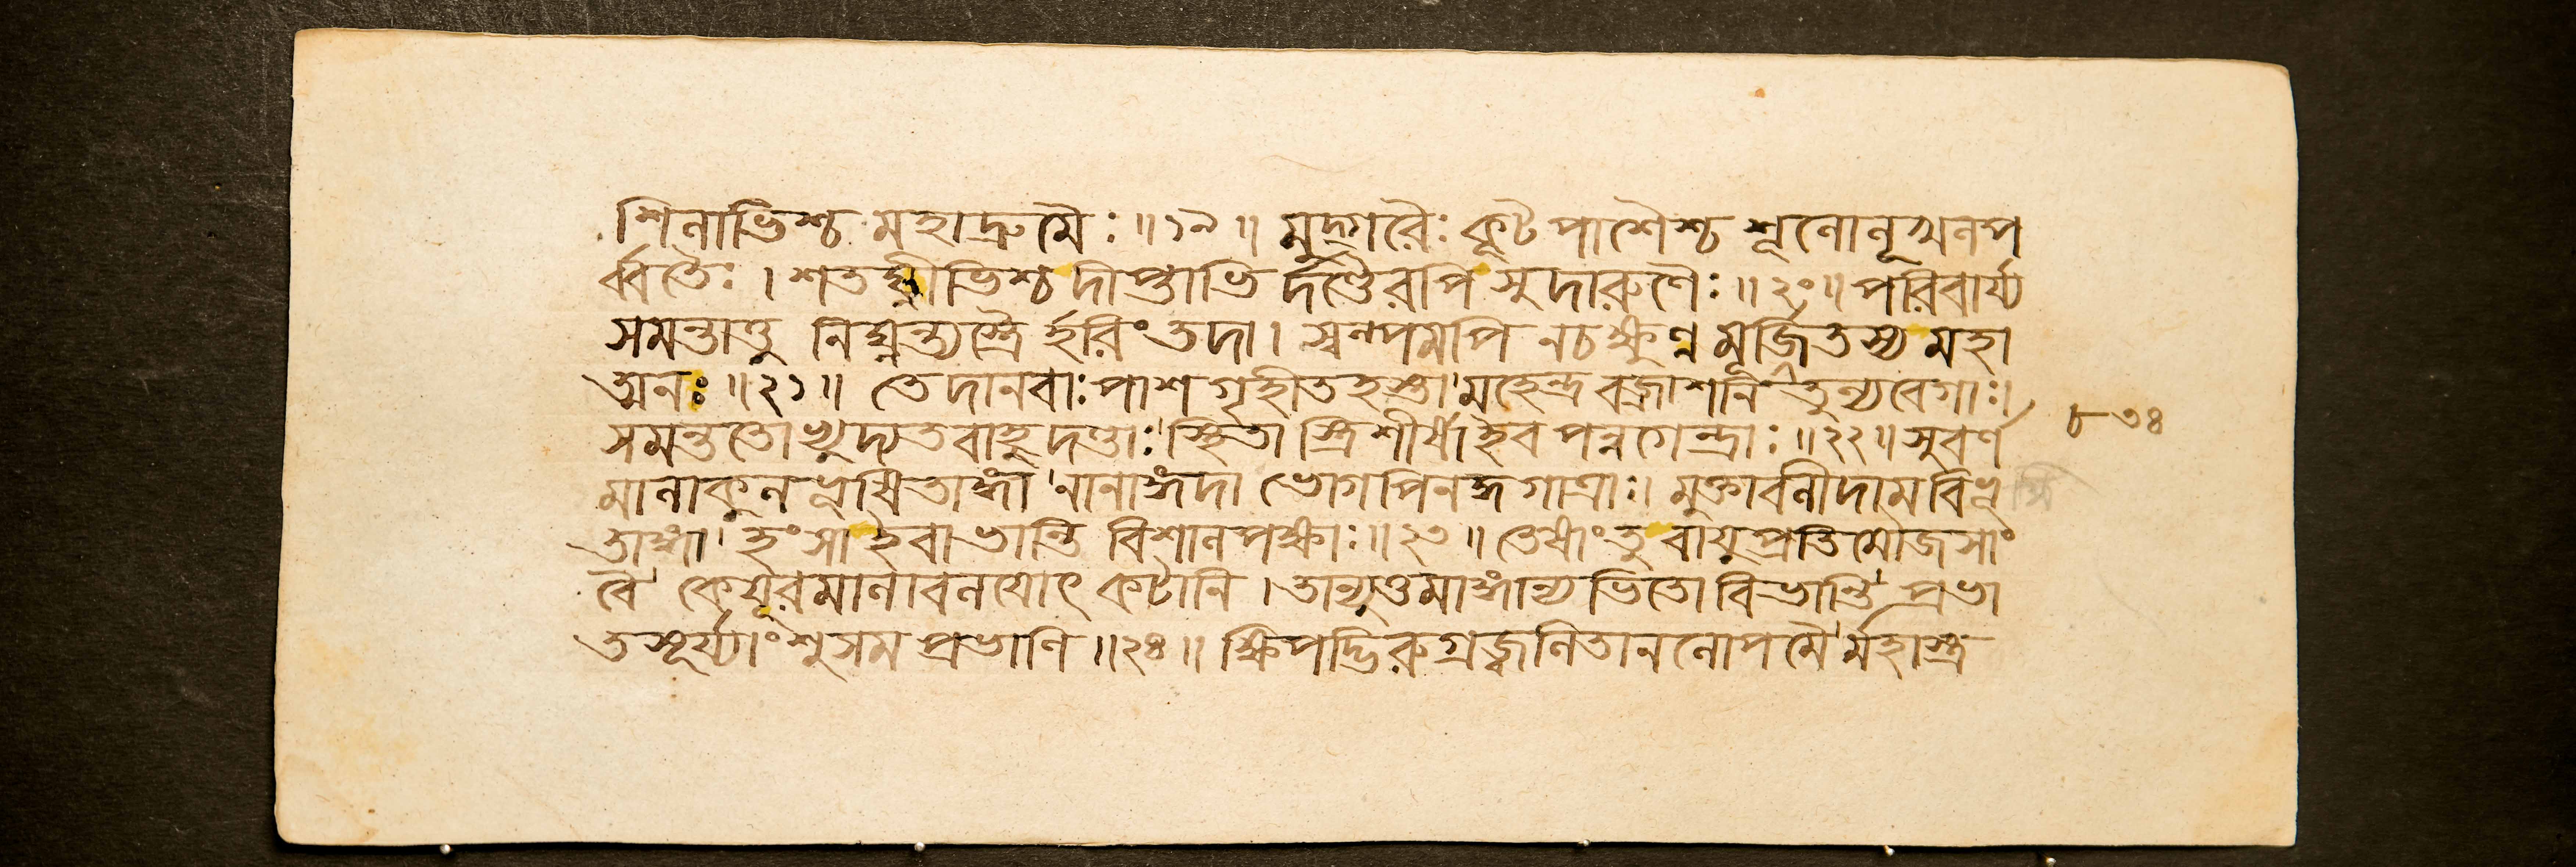 শিলাভিশ্চ মহাদ্রুমৈঃ ॥১৯॥ মুদ্গরৈঃ কূটপাশৈশ্চ শূলোলূখলপ
র্ব্বতৈঃ । শতঘ্নীভিশ্চ দীপ্তাভি র্দণ্ডৈরপি সুদারুণৈঃ ॥২০॥ পরিবার্য্য
সমন্তাত্তু নিঘ্নন্ত্যস্ত্রৈ র্হরিং তদা । স্বল্পমপি নচক্ষুণ্ন মূর্জিতস্য মহা
ত্মনঃ ॥২১॥ তে দানবাঃ পাশগৃহীতহস্তা মহেন্দ্র বজ্রাশনি তুল্যবেগাঃ।
সমন্ততো খুদ্যতবাহুদণ্ডাঃ স্থিতা স্ত্রিশীর্ষা ইব পন্নগেন্দ্রাঃ ॥২২॥ সুবর্ণ
মালাকুল ভূষিতাঙ্গা নানাঙ্গদা ভোগপিনদ্ধগাত্রাঃ। মুক্তাবলীদাম বিভূষি
তাঙ্গা হংসা ইবাভান্তি বিশালপক্ষাঃ ॥২৩॥ তেষাং তু বায়ুপ্রতিমৌজসাং
বৈ কেয়ূরমালাবলয়োৎকটানি । তান্যুত্তমাঙ্গান্য ভিতো বিভান্তি প্রভা
ত সূর্য্যাংশুসম প্রভাণি ॥২৪॥ ক্ষিপদ্ভিরুগ্রজ্বলিতানলোপমৈ র্মহাস্ত্র
৮৩৪